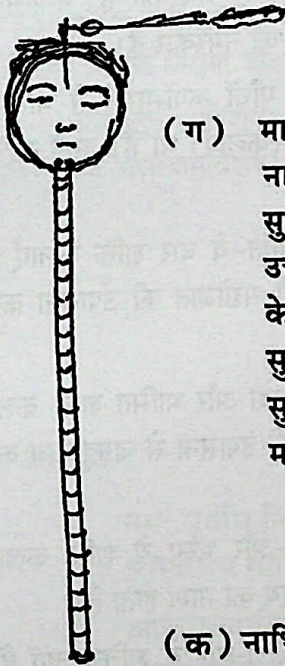 (ग) मा
ना
सु
उ
के
सु
सु
म
(क) नाभि